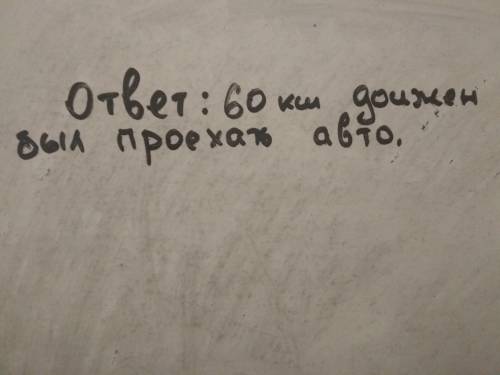 Ответ: 60 км должен
был проехать авто.